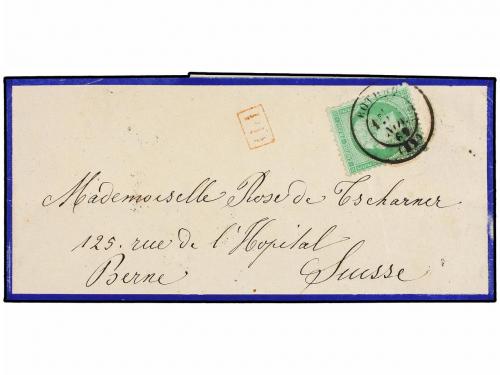 Mademoiselle Rose de Tscharner
125, rue de l'Hopital
Berne Suisse